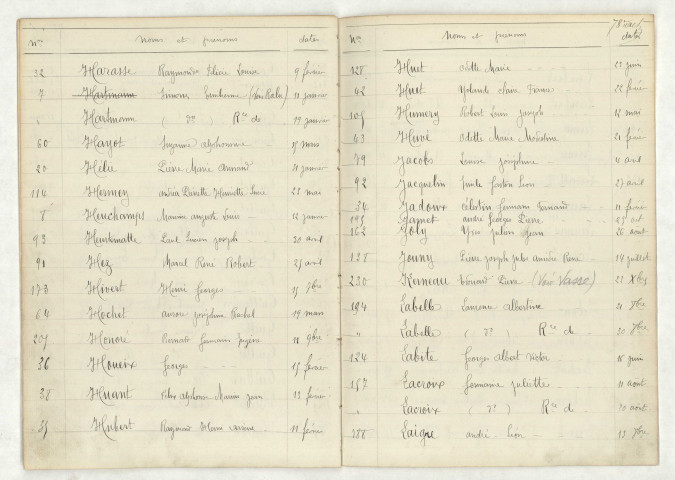 Nos Noms et prénoms dates
32 Harasse Raymonde Félicie Louise 9 février
7 Hartmann Simone (Voir Rolin) 11 janvier
" Hartmann ( do ) Rce de 19 janvier
60 Hayot Suzanne Alphonsine 15 mars
20 Hélie Pierre Marie Armand 31 janvier
114 Henriette 22 mai
8 Heuchamps Maxime Auguste Louis 12 janvier
93 Paul Lucien Joseph 20 avril
91 Hez Marcel René Robert 27 avril
173 Hivert Henri Georges 15 7bre
64 Hochet Aurore Joséphine Rachel 19 mars
207 Honoré Bernard Germain Eugène 11 9bre
36 Houeix Georges 15 février
38 Huant Félix Alphonse Maxim Jean 18 février
35 Hubert Raymond 11 février
Nos Noms et prénoms dates
128 Huet Odette Marie 21 juin
42 Huet Yolande France 22 février
105 Humery Robert Louis Joseph 12 mai
43 Odette Marie 21 février
79 Jacobs Louise Joséphine 4 avril
92 Jacquelin Léon 27 avril
34 Jadoux Célestin Germain Fernand 11 février
195 Jamet André Georges Pierre 25 oct
162 Joly Yves Julien Jean 26 août
138 Jouny Pierre Joseph Jules René 19 juillet
230 Kerneau Pierre (Voir Vasse) 23 Xbre
184 Labelle Laurence Albertine 21 7bre
" Labelle ( do ) Rce de 30 7bre
124 Labite Georges Albert Victor 16 juin
157 Lacroix Germaine Juliette 11 août
" Lacroix ( do ) Rce de 20 août
186 Laigre André Léon 13 7bre